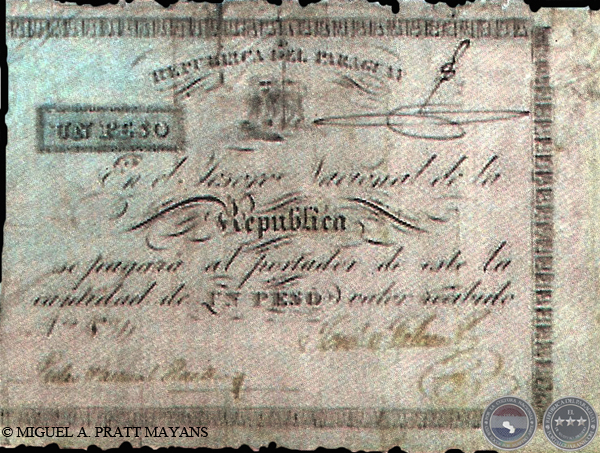 REPUBLICA DEL PARAGUAY
UN PESO
En el Tesoro Nacional de la
Republica
se pagará al portador de este la
cantidad de UN PESO valor recibido
© MIGUEL A. PRATT MAYANS